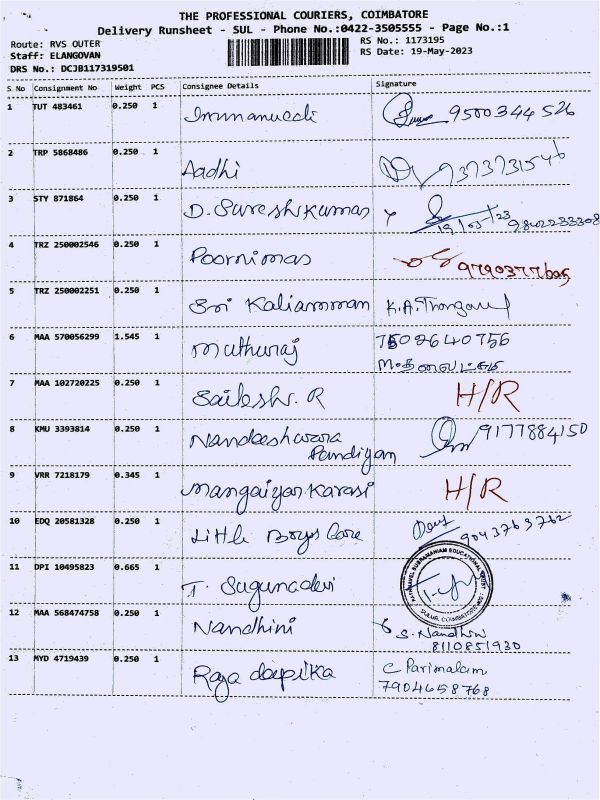 THE PROFESSIONAL COURIERS, COIMBATORE
Delivery Runsheet - SUL - Phone No.:0422-3505555 - Page No.:1
Route: RVS OUTER
Staff: ELANGOVAN
DRS No.: DCJB117319501
RS No.: 1173195
RS Date: 19-May-2023
S No Consignment No Weight PCS Consignee Details Signature
1 TUT 483461 0.250 1 9500344526
2 TRP 5868486 0.250 1 Aadhi
3 STY 871864 0.250 1 D. Sureshkumar 19/05/23 9842233308
4 TRZ 250002546 0.250 1 Poornimas
5 TRZ 250002251 0.250 1 Sri Kaliamman K.A.Thangavel
6 MAA 570056299 1.545 1 Muthuraj 7502640756
7 MAA 102720225 0.250 1 Sailesh. R H/R
8 KMU 3393814 0.250 1 Nandeeshwara 9177884150
Pandiyan
9 VRR 7218179 0.345 1 Mangaiyar Karasi H/R
10 EDQ 20581328 0.250 1 Little Boys Core 9043763762
11 DPI 10495823 0.665 1 T. Sugunadevi
SUBRAMANIAM EDUCATIONAL TRUST
SULUR, COIMBATORE
12 MAA 568474758 0.250 1 Nandhini S. Nandhini
8110851930
13 MYD 4719439 0.250 1 Raja deepika C Parimalam
7904658768